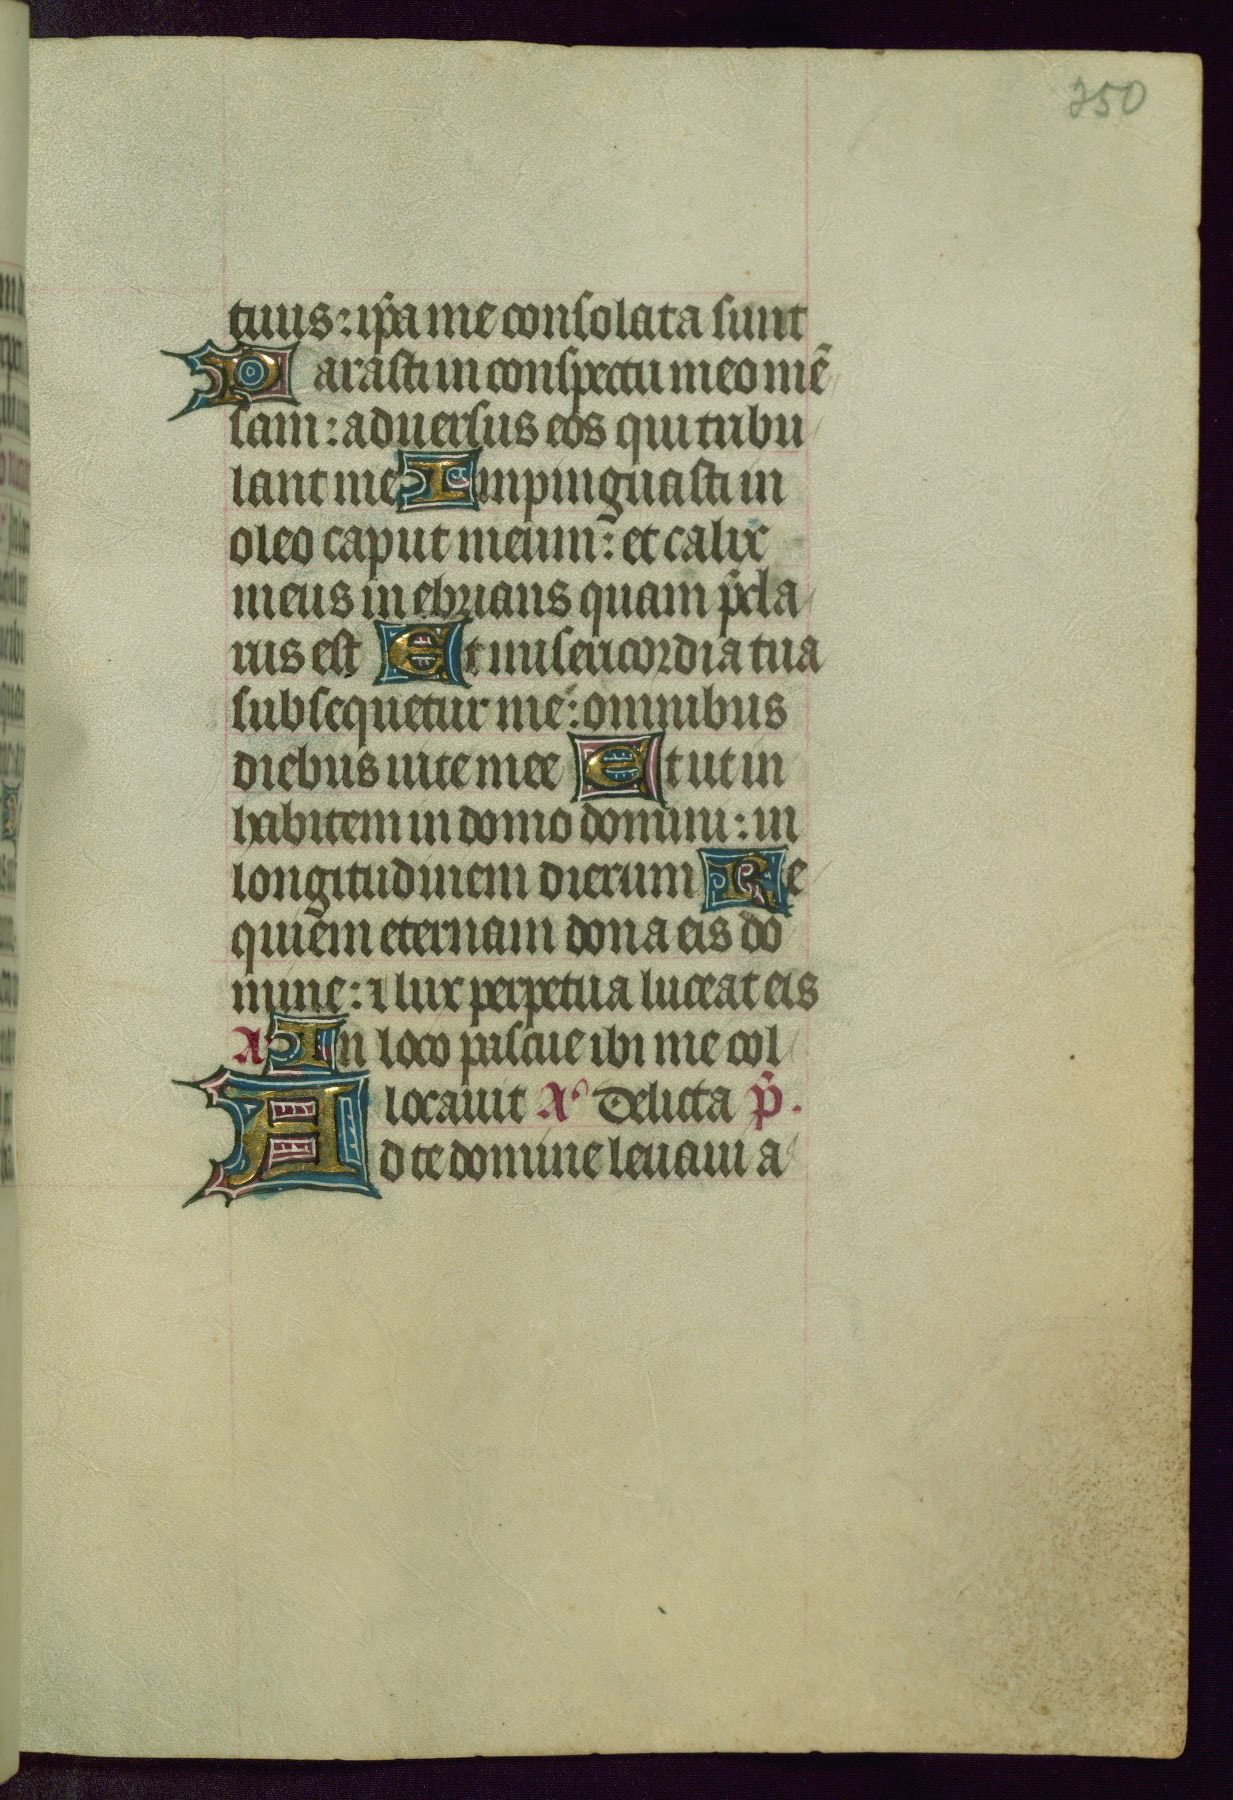 250
tuus: ip̃a me consolata sunt
Parasti in conspectu meo mẽ
sam: adversus eos qui tribu
lant me Impinguasti in
oleo caput meum: et calix
meus inebrians quam p̃cla
rus est Et misericordia tua
subsequetur me: omnibus
diebus uite mee Et ut in
habitem in domo domini: in
longitudinem dierum Re
quiem eternam dona eis do
mine: ⁊ lux perpetua luceat eis
A In loco pascue ibi me col
locauit Aͦ Delicta p̃.
Ad te domine leuaui a